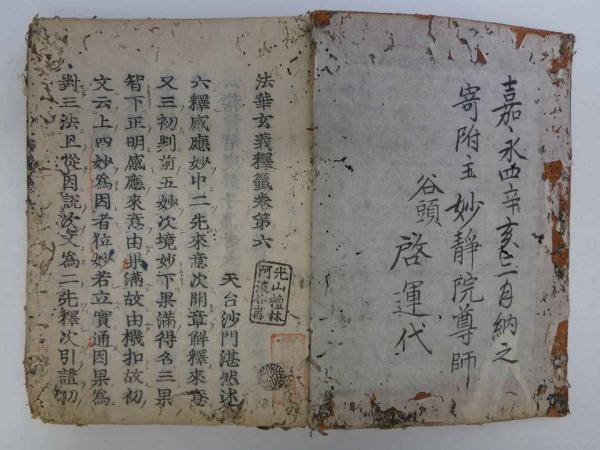 嘉永四辛亥二月納之
寄附主妙靜院尊師
谷頭
啓運代
法華玄義釋籤卷第六
天台沙門湛然述
六釋感應妙中二先來意次開章解釋來意
又三初判前五妙次境妙下果滿得名三果
智下正明感應來意由果滿故由機扣故初
文云上四妙爲因者位妙若立實通因果爲
對三法且從因說次文爲二先釋次引證初